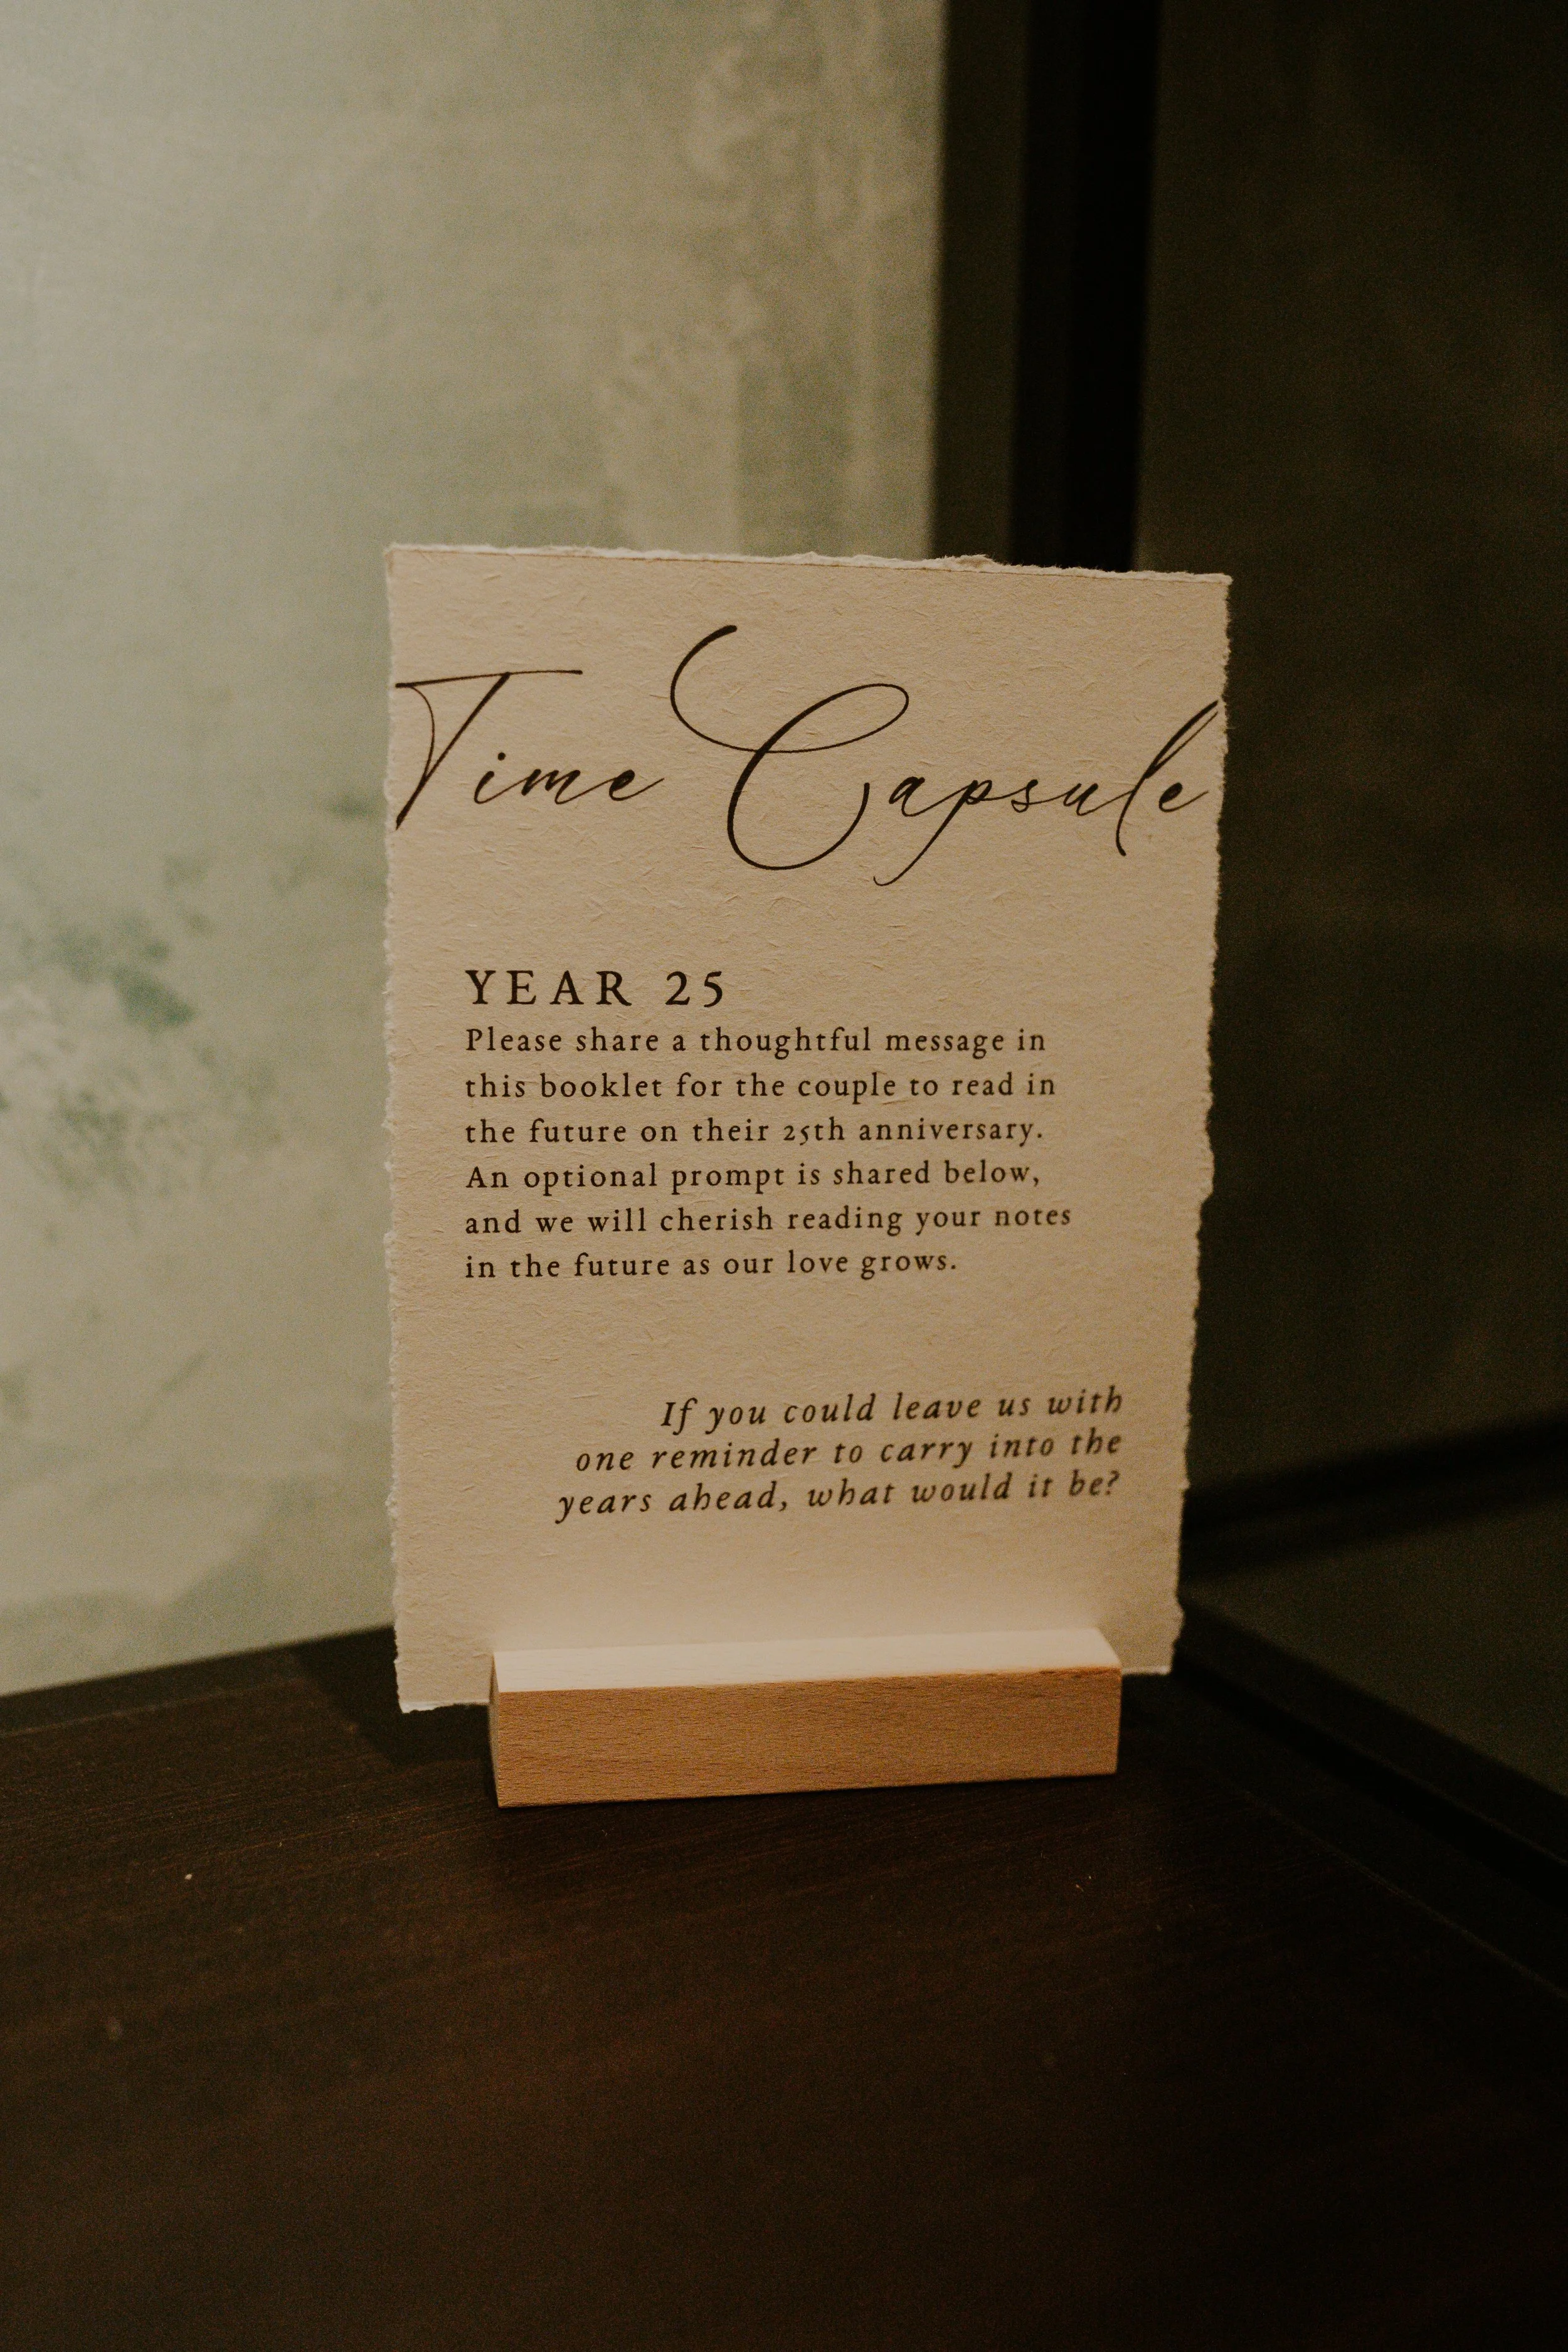 Time Capsule
YEAR 25
Please share a thoughtful message in
this booklet for the couple to read in
the future on their 25th anniversary.
An optional prompt is shared below,
and we will cherish reading your notes
in the future as our love grows.
If you could leave us with
one reminder to carry into the
years ahead, what would it be?